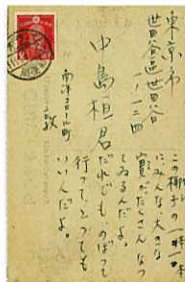 東京市
世田谷区世田谷
一ノ一二四
中島桓君
南洋コロール町
敦
この椰子の一本一本
にみんな、大きな
実がたくさんなつ
てゐるんだよ。
だれでも、のぼつて
行つて、とつても
いいんだよ。